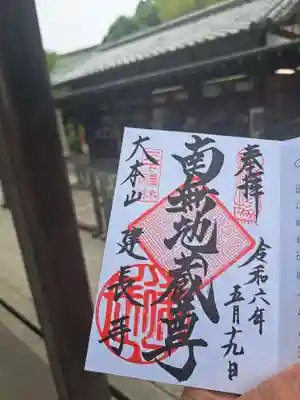 奉拝
令和六年
五月十九日
南無地蔵尊
大本山
建長寺